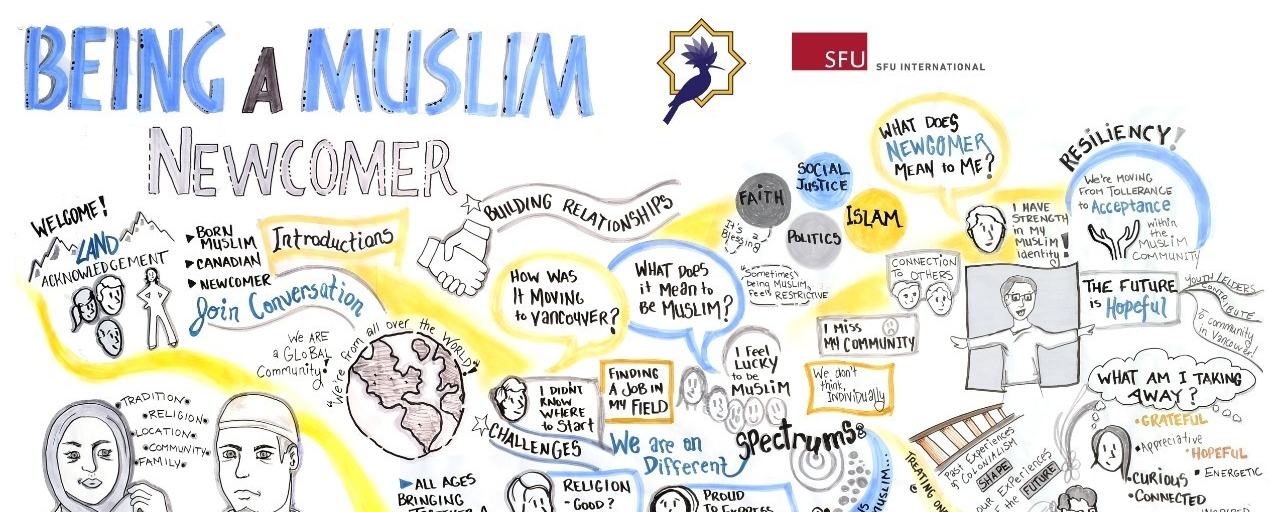 BEING A MUSLIM
NEWCOMER
SFU
SFU INTERNATIONAL
WELCOME!
LAND
ACKNOWLEDGEMENT
BORN
MUSLIM
CANADIAN
NEWCOMER
Introductions
Join Conversation
BUILDING RELATIONSHIPS
We ARE
a GLoBAL
Community!
"We're from all over the WORLD!"
TRADITION
RELIGION
LOCATION
COMMUNITY
FAMILY
HOW WAS
IT MOVING
to VANCOUVER?
WHAT DOES
it MEAN to
BE MUSLIM?
FAITH
SOCIAL
JUSTICE
POLITICS
ISLAM
It's a
Blessing
"Sometimes
being MUSLIM
feels RESTRICTIVE
WHAT DOES
NEWCOMER
MEAN to ME?
I HAVE
STRENGTH
IN MY
MUSLIM
Identity!
RESILIENCY!
We're MOVING
FROM TOLLERANCE
to Acceptance
within
the
MUSLIM
COMMUNITY
CONNECTION
TO OTHERS
THE FUTURE
is Hopeful
YOUTH/ELDERS
CONTRIBUTE
To Community
in Vancouver!
I MISS
MY COMMUNITY
We don't
think,
Individually
I FEEL
LUCKY
to be
MUSLIM
FINDING
A JOB IN
MY FIELD
I DIDNT
KNOW
WHERE
to START
CHALLENGES
We are on
Different
SPECTRUMS
WHAT AM I TAKING
AWAY?
GRATEFUL
Appreciative
HOPEFUL
ENERGETIC
CURIOUS
CONNECTED
Past Experiences
of COLONIALISM
SHAPE
OUR EXPERIENCES
of the FUTURE
ALL AGES
BRINGING
RELIGION
-GOOD?
PROUD
MUSLIM...